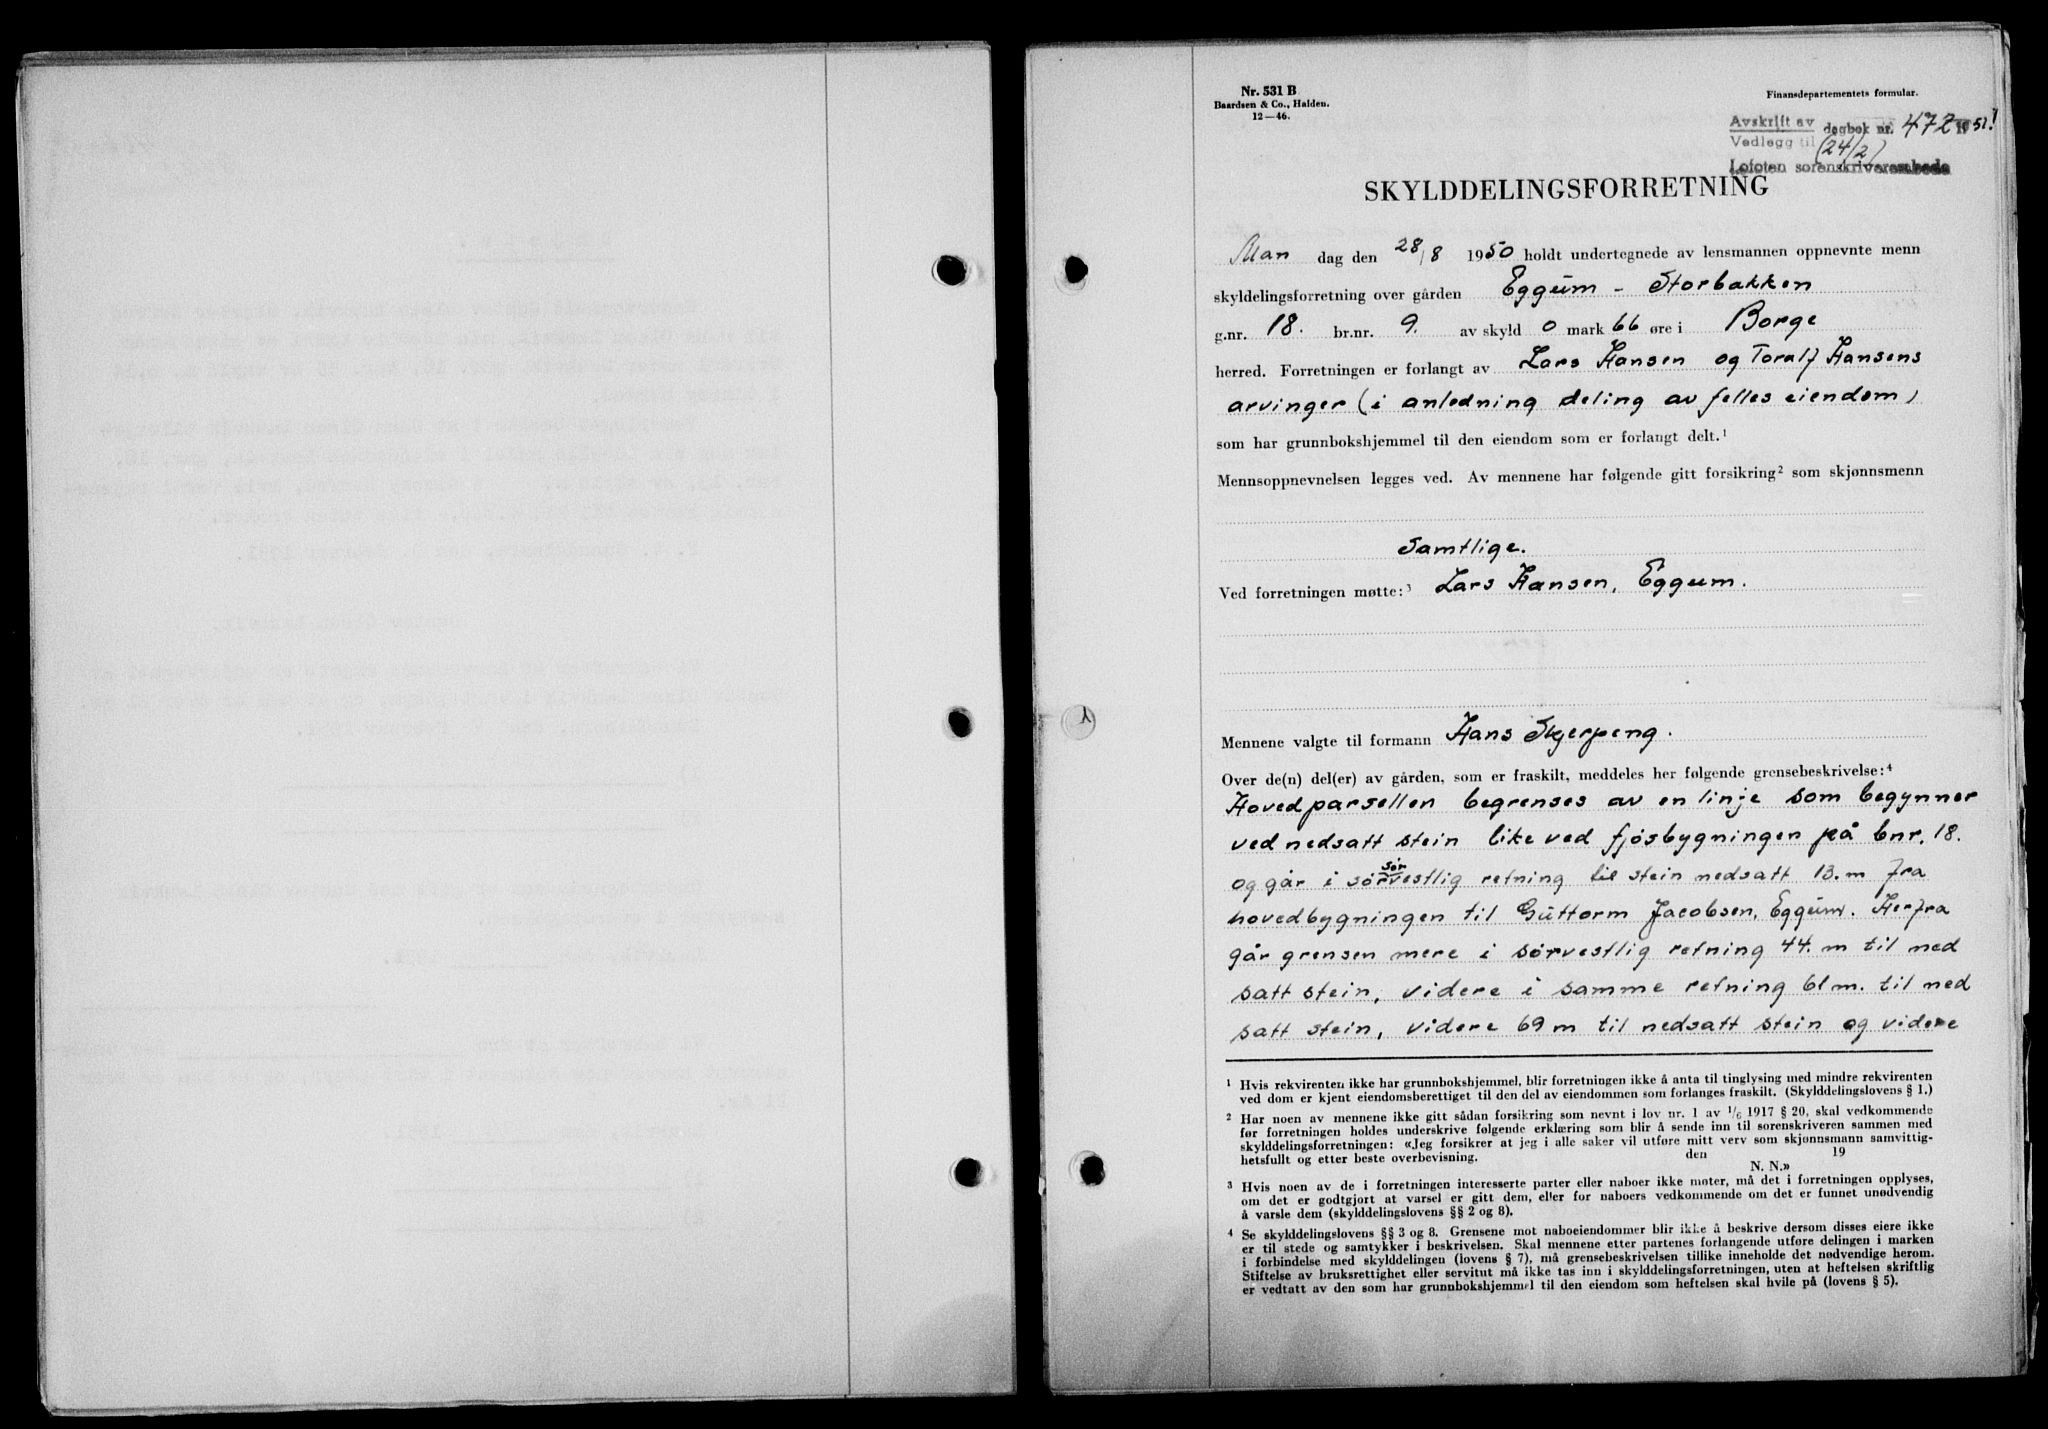 Nr. 531 B
Baardsen & Co., Halden.
12—46.
Finansdepartementets formular.
Avskrift av
Vedlegg til dagbok nr. 472 1951
(24/2)
Lofoten sorenskriverembede
SKYLDDELINGSFORRETNING
Man dag den 28/8 1950 holdt undertegnede av lensmannen oppnevnte menn
skyldelingsforretning over gården Eggum - Storbakken
g.nr. 18. br.nr. 9. av skyld 0 mark 66 øre i Borge
herred. Forretningen er forlangt av Lars Hansen og Toralf Hansens
arvinger (i anledning deling av felles eiendom)
som har grunnbokshjemmel til den eiendom som er forlangt delt.¹
Mennsoppnevnelsen legges ved. Av mennene har følgende gitt forsikring² som skjønnsmenn
Samtlige.
Ved forretningen møtte:³ Lars Hansen, Eggum.
Mennene valgte til formann Hans Skjerpeng.
Over de(n) del(er) av gården, som er fraskilt, meddeles her følgende grensebeskrivelse:⁴
Hovedparsellen begrenses av en linje som begynner
ved nedsatt stein like ved fjøsbygningen på bnr. 18.
og går i sør
sørvestlig retning til stein nedsatt 13.m fra
hovedbygningen til Guttorm Jacobsen, Eggum. Herfra
går grensen mere i sørvestlig retning 44.m til ned
satt stein, videre i samme retning 61m. til ned
satt stein, videre 69m til nedsatt stein og videre
¹ Hvis rekvirenten ikke har grunnbokshjemmel, blir forretningen ikke å anta til tinglysing med mindre rekvirenten
ved dom er kjent eiendomsberettiget til den del av eiendommen som forlanges fraskilt. (Skylddelingslovens § 1.)
² Har noen av mennene ikke gitt sådan forsikring som nevnt i lov nr. 1 av 1/6 1917 § 20, skal vedkommende
før forretningen holdes underskrive følgende erklæring som blir å sende inn til sorenskriveren sammen med
skylddelingsforretningen: «Jeg forsikrer at jeg i alle saker vil utføre mitt verv som skjønnsmann samvittig-
hetsfullt og etter beste overbevisning. den 19
N. N.»
³ Hvis noen av de i forretningen interesserte parter eller naboer ikke møter, må det i forretningen opplyses,
om det er godtgjort at varsel er gitt dem, eller for naboers vedkommende om det er funnet unødvendig
å varsle dem (skylddelingslovens §§ 2 og 8).
⁴ Se skylddelingslovens §§ 3 og 8. Grensene mot naboeiendommer blir ikke å beskrive dersom disses eiere ikke
er til stede og samtykker i beskrivelsen. Skal mennene etter partenes forlangende utføre delingen i marken
i forbindelse med skylddelingen (lovens § 7), må grensebeskrivelsen tillike inneholde det nødvendige herom.
Stiftelse av bruksrettighet eller servitut må ikke tas inn i skylddelingsforretningen, uten at heftelsen skriftlig
er vedtatt av den som har grunnbokshjemmel til den eiendom som heftelsen skal hvile på (lovens § 5).